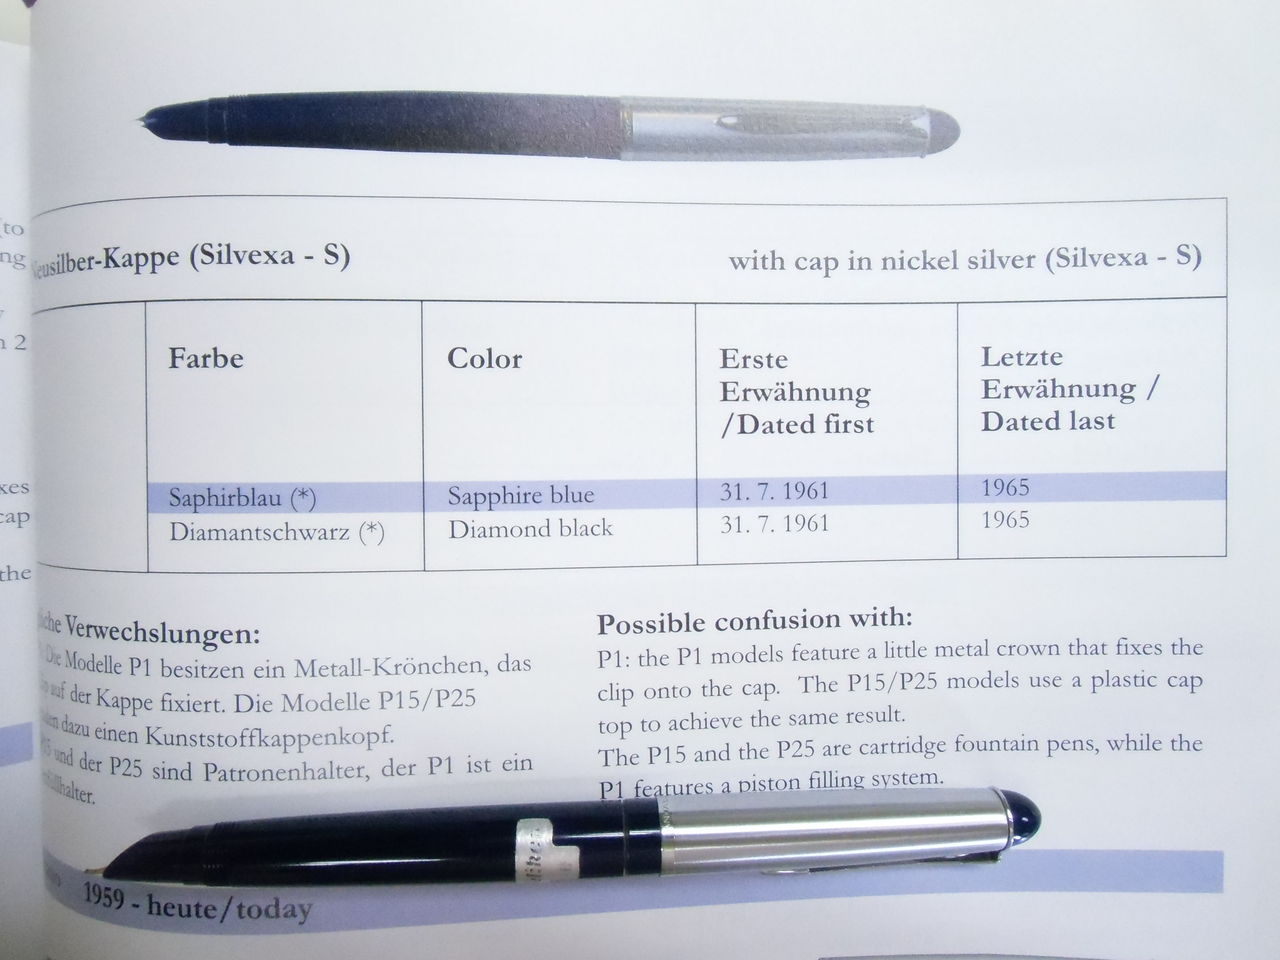 to
ng
n 2
xes
cap
the
Neusilber-Kappe (Silvexa - S)
with cap in nickel silver (Silvexa - S)
Farbe
Color
Erste
Erwähnung
/Dated first
Letzte
Erwähnung /
Dated last
Saphirblau (*)
Sapphire blue
31. 7. 1961
1965
Diamantschwarz (*)
Diamond black
31. 7. 1961
1965
Verwechslungen:
Die Modelle P1 besitzen ein Metall-Krönchen, das
auf der Kappe fixiert. Die Modelle P15/P25
dazu einen Kunststoffkappenkopf.
und der P25 sind Patronenhalter, der P1 ist ein
Possible confusion with:
P1: the P1 models feature a little metal crown that fixes the
clip onto the cap. The P15/P25 models use a plastic cap
top to achieve the same result.
The P15 and the P25 are cartridge fountain pens, while the
P1 features a piston filling system.
1959 - heute/today